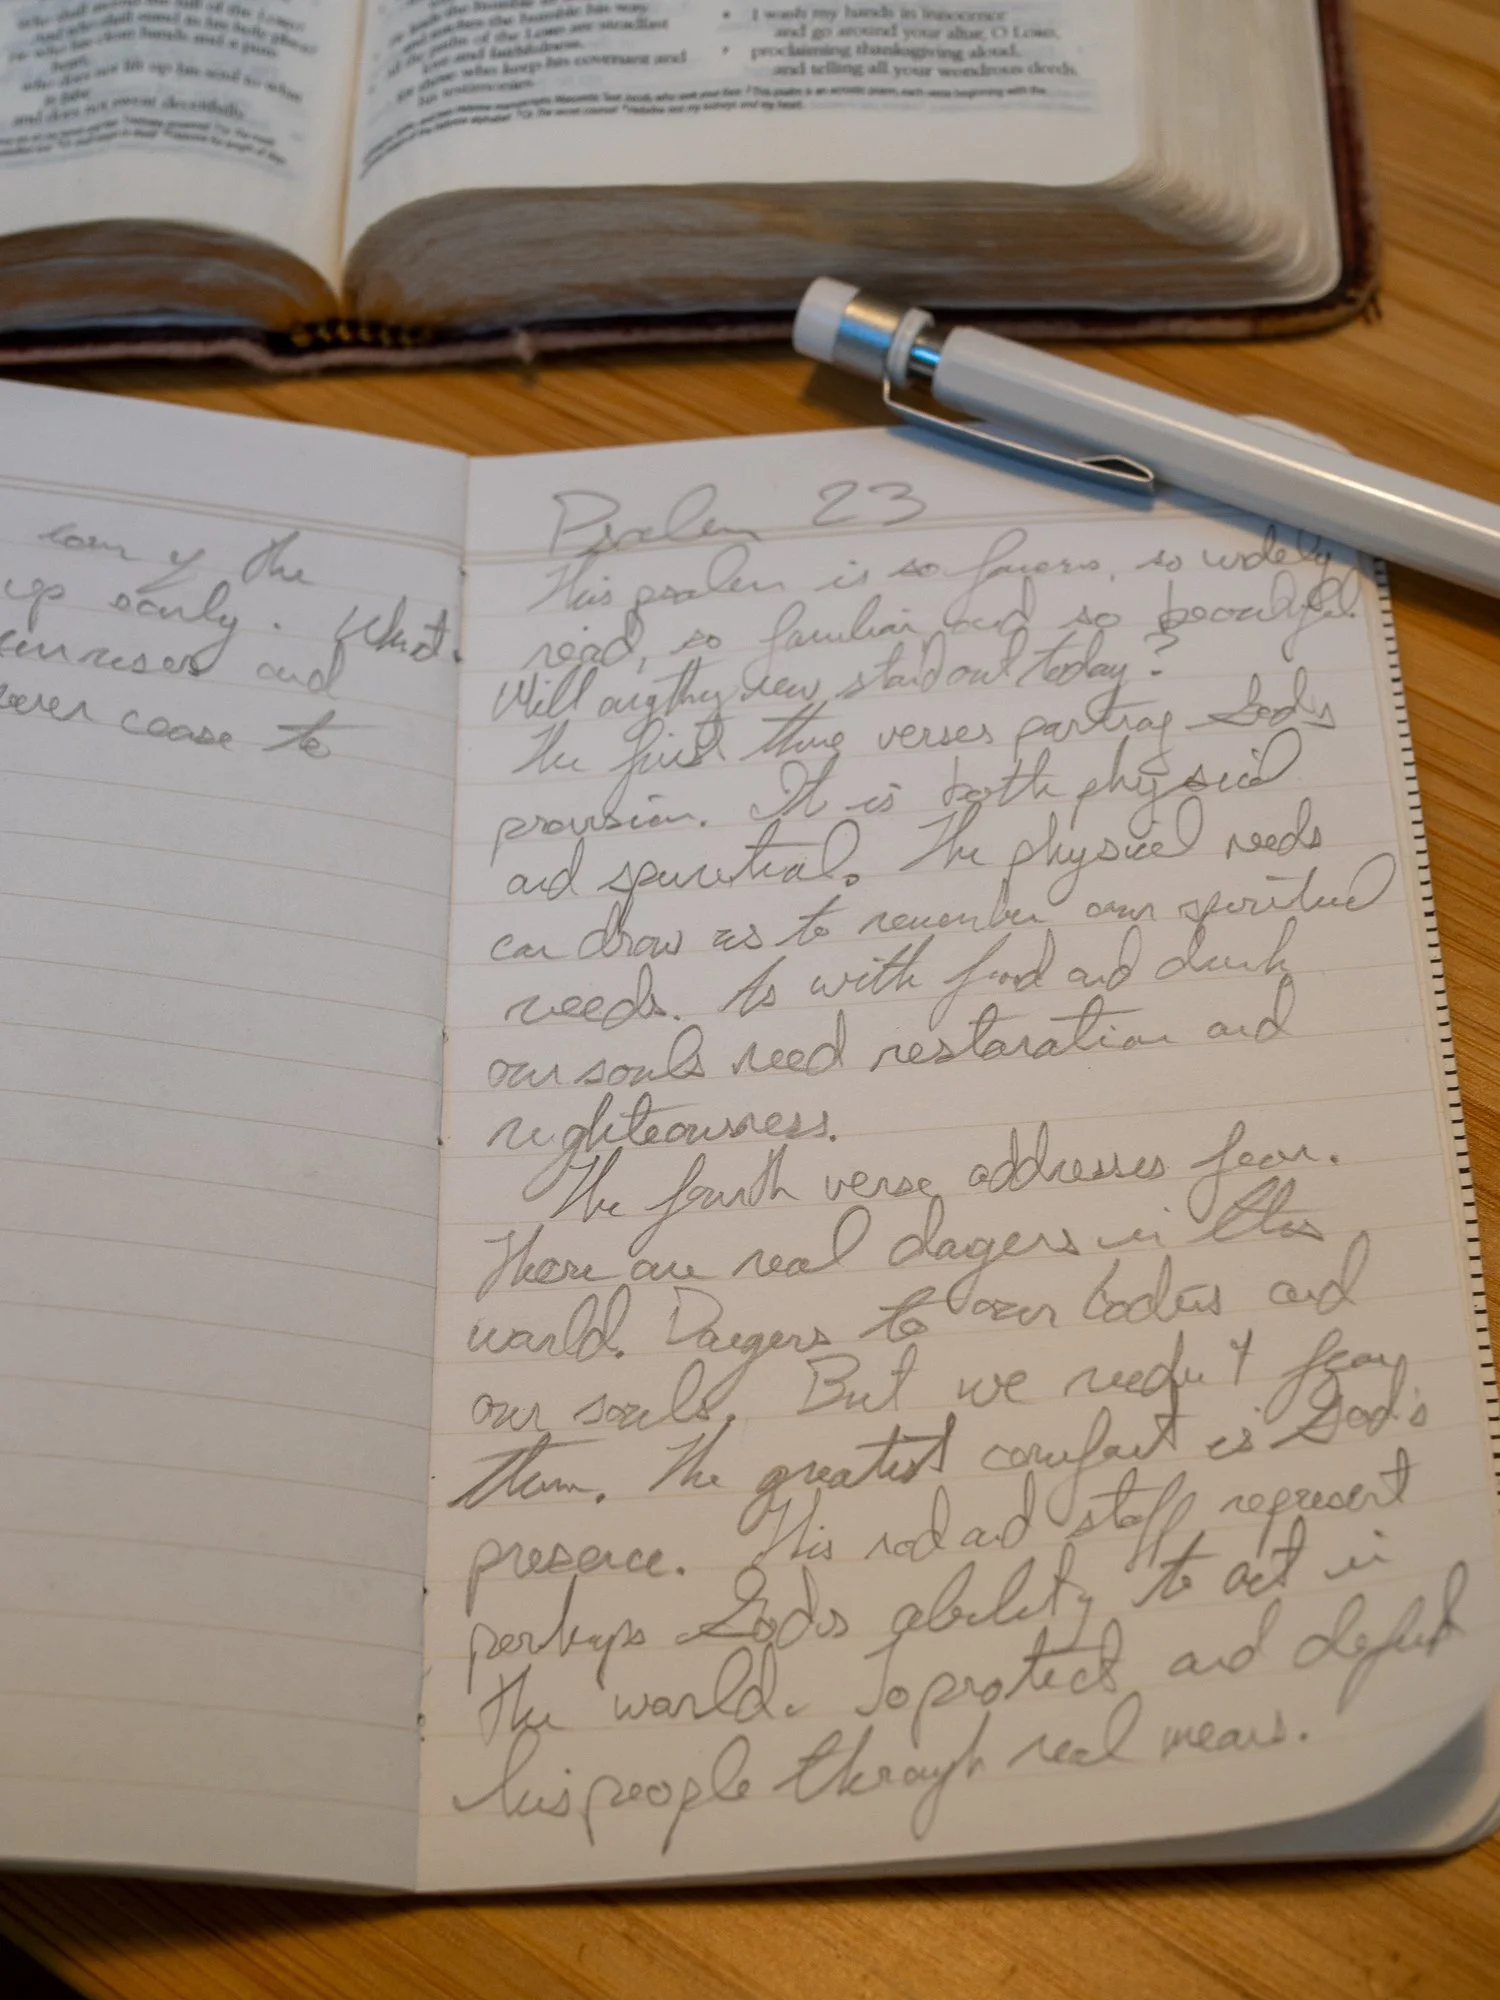 who does not lift up his soul to what
is false
and does not swear deceitfully.
and teaches the humble his way.
All the paths of the LORD are steadfast
love and faithfulness,
for those who keep his covenant and
his testimonies.
I wash my hands in innocence
and go around your altar, O LORD,
7 proclaiming thanksgiving aloud,
and telling all your wondrous deeds.
the
up early. What
sunrises and
never cease to
Psalm 23
This psalm is so famous, so widely
read, so familiar and so beautiful.
Will anything new stand out today?
The first three verses portray God's
provision. It is both physical
and spiritual. The physical needs
can draw us to remember our spiritual
needs. As with food and drink
our souls need restoration and
righteousness.
The fourth verse addresses fear.
There are real dangers in this
world. Dangers to our bodies and
our souls. But we needn't fear
them. The greatest comfort is God's
presence. His rod and staff represent
perhaps God's ability to act in
the world. To protect and defend
his people through real means.